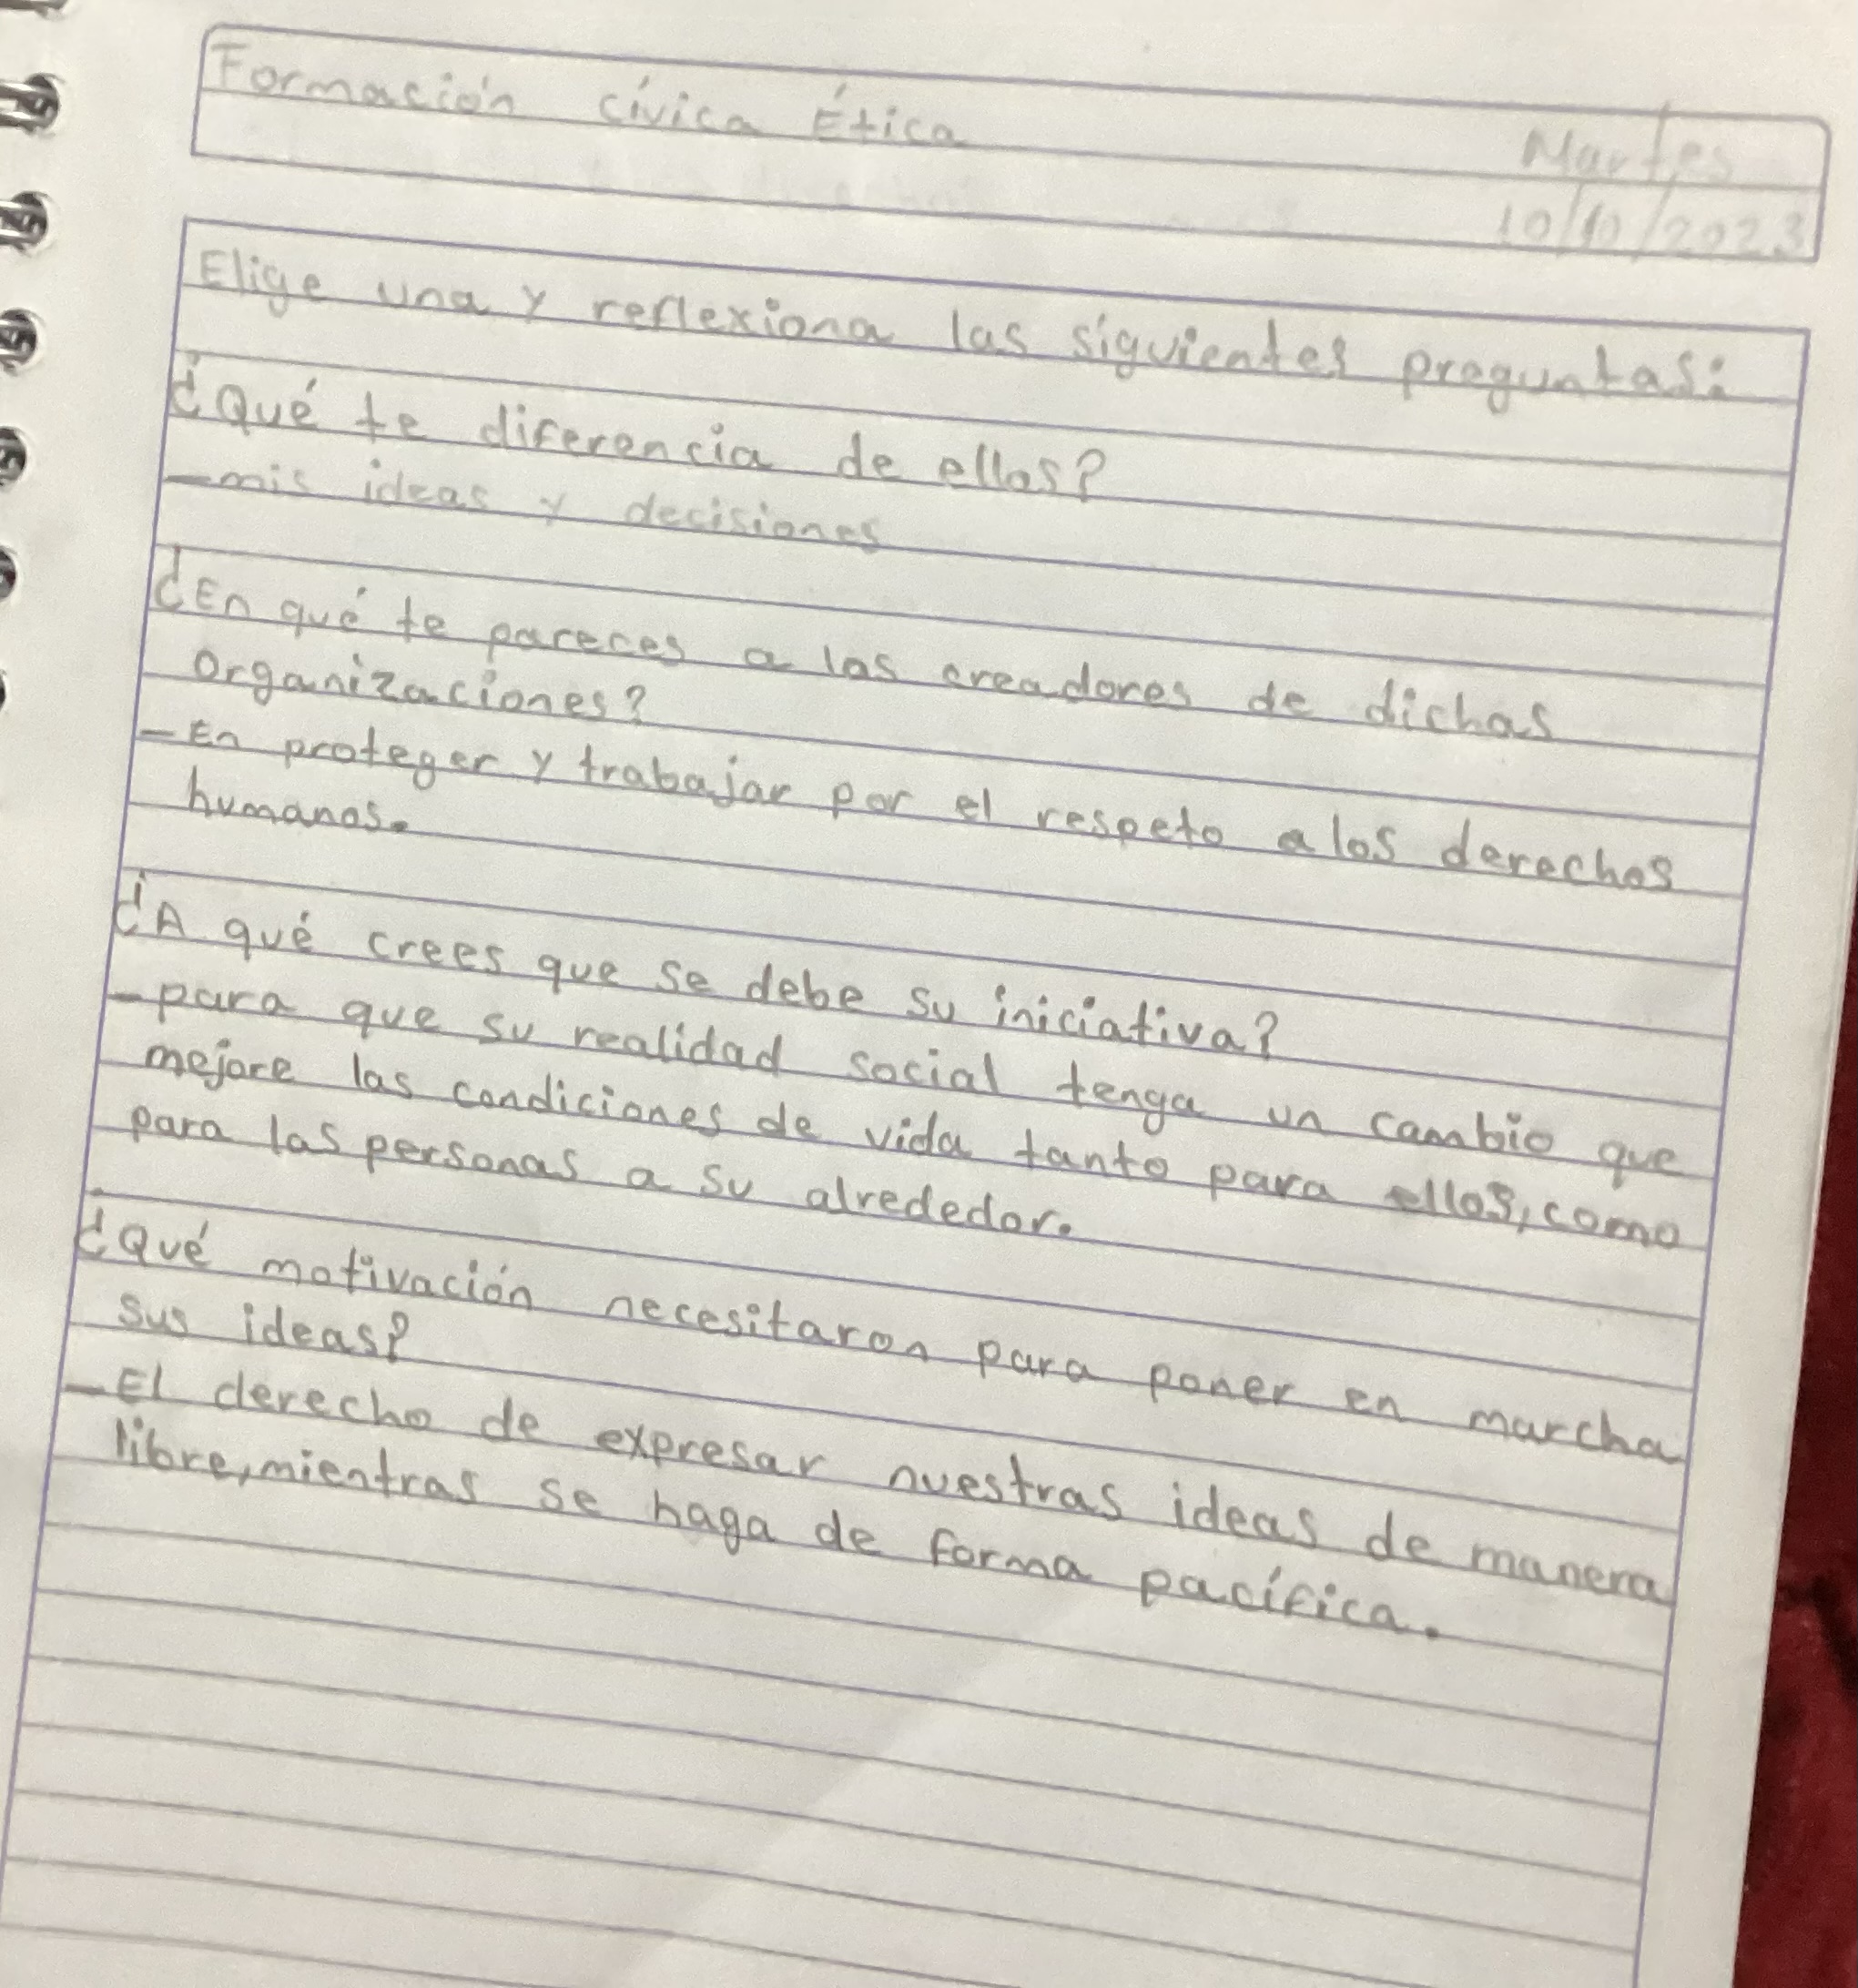 Formación cívica Ética
Martes
10/10/2023
Elige una y reflexiona las siguientes preguntas:
¿Qué te diferencia de ellos?
-mis ideas y decisiones
¿En qué te pareces a los creadores de dichas
organizaciones?
-En proteger y trabajar por el respeto a los derechos
humanos.
¿A qué crees que se debe su iniciativa?
-para que su realidad social tenga un cambio que
mejore las condiciones de vida tanto para ellos, como
para las personas a su alrededor.
¿Qué motivación necesitaron para poner en marcha
sus ideas?
-El derecho de expresar nuestras ideas de manera
libre, mientras se haga de forma pacífica.